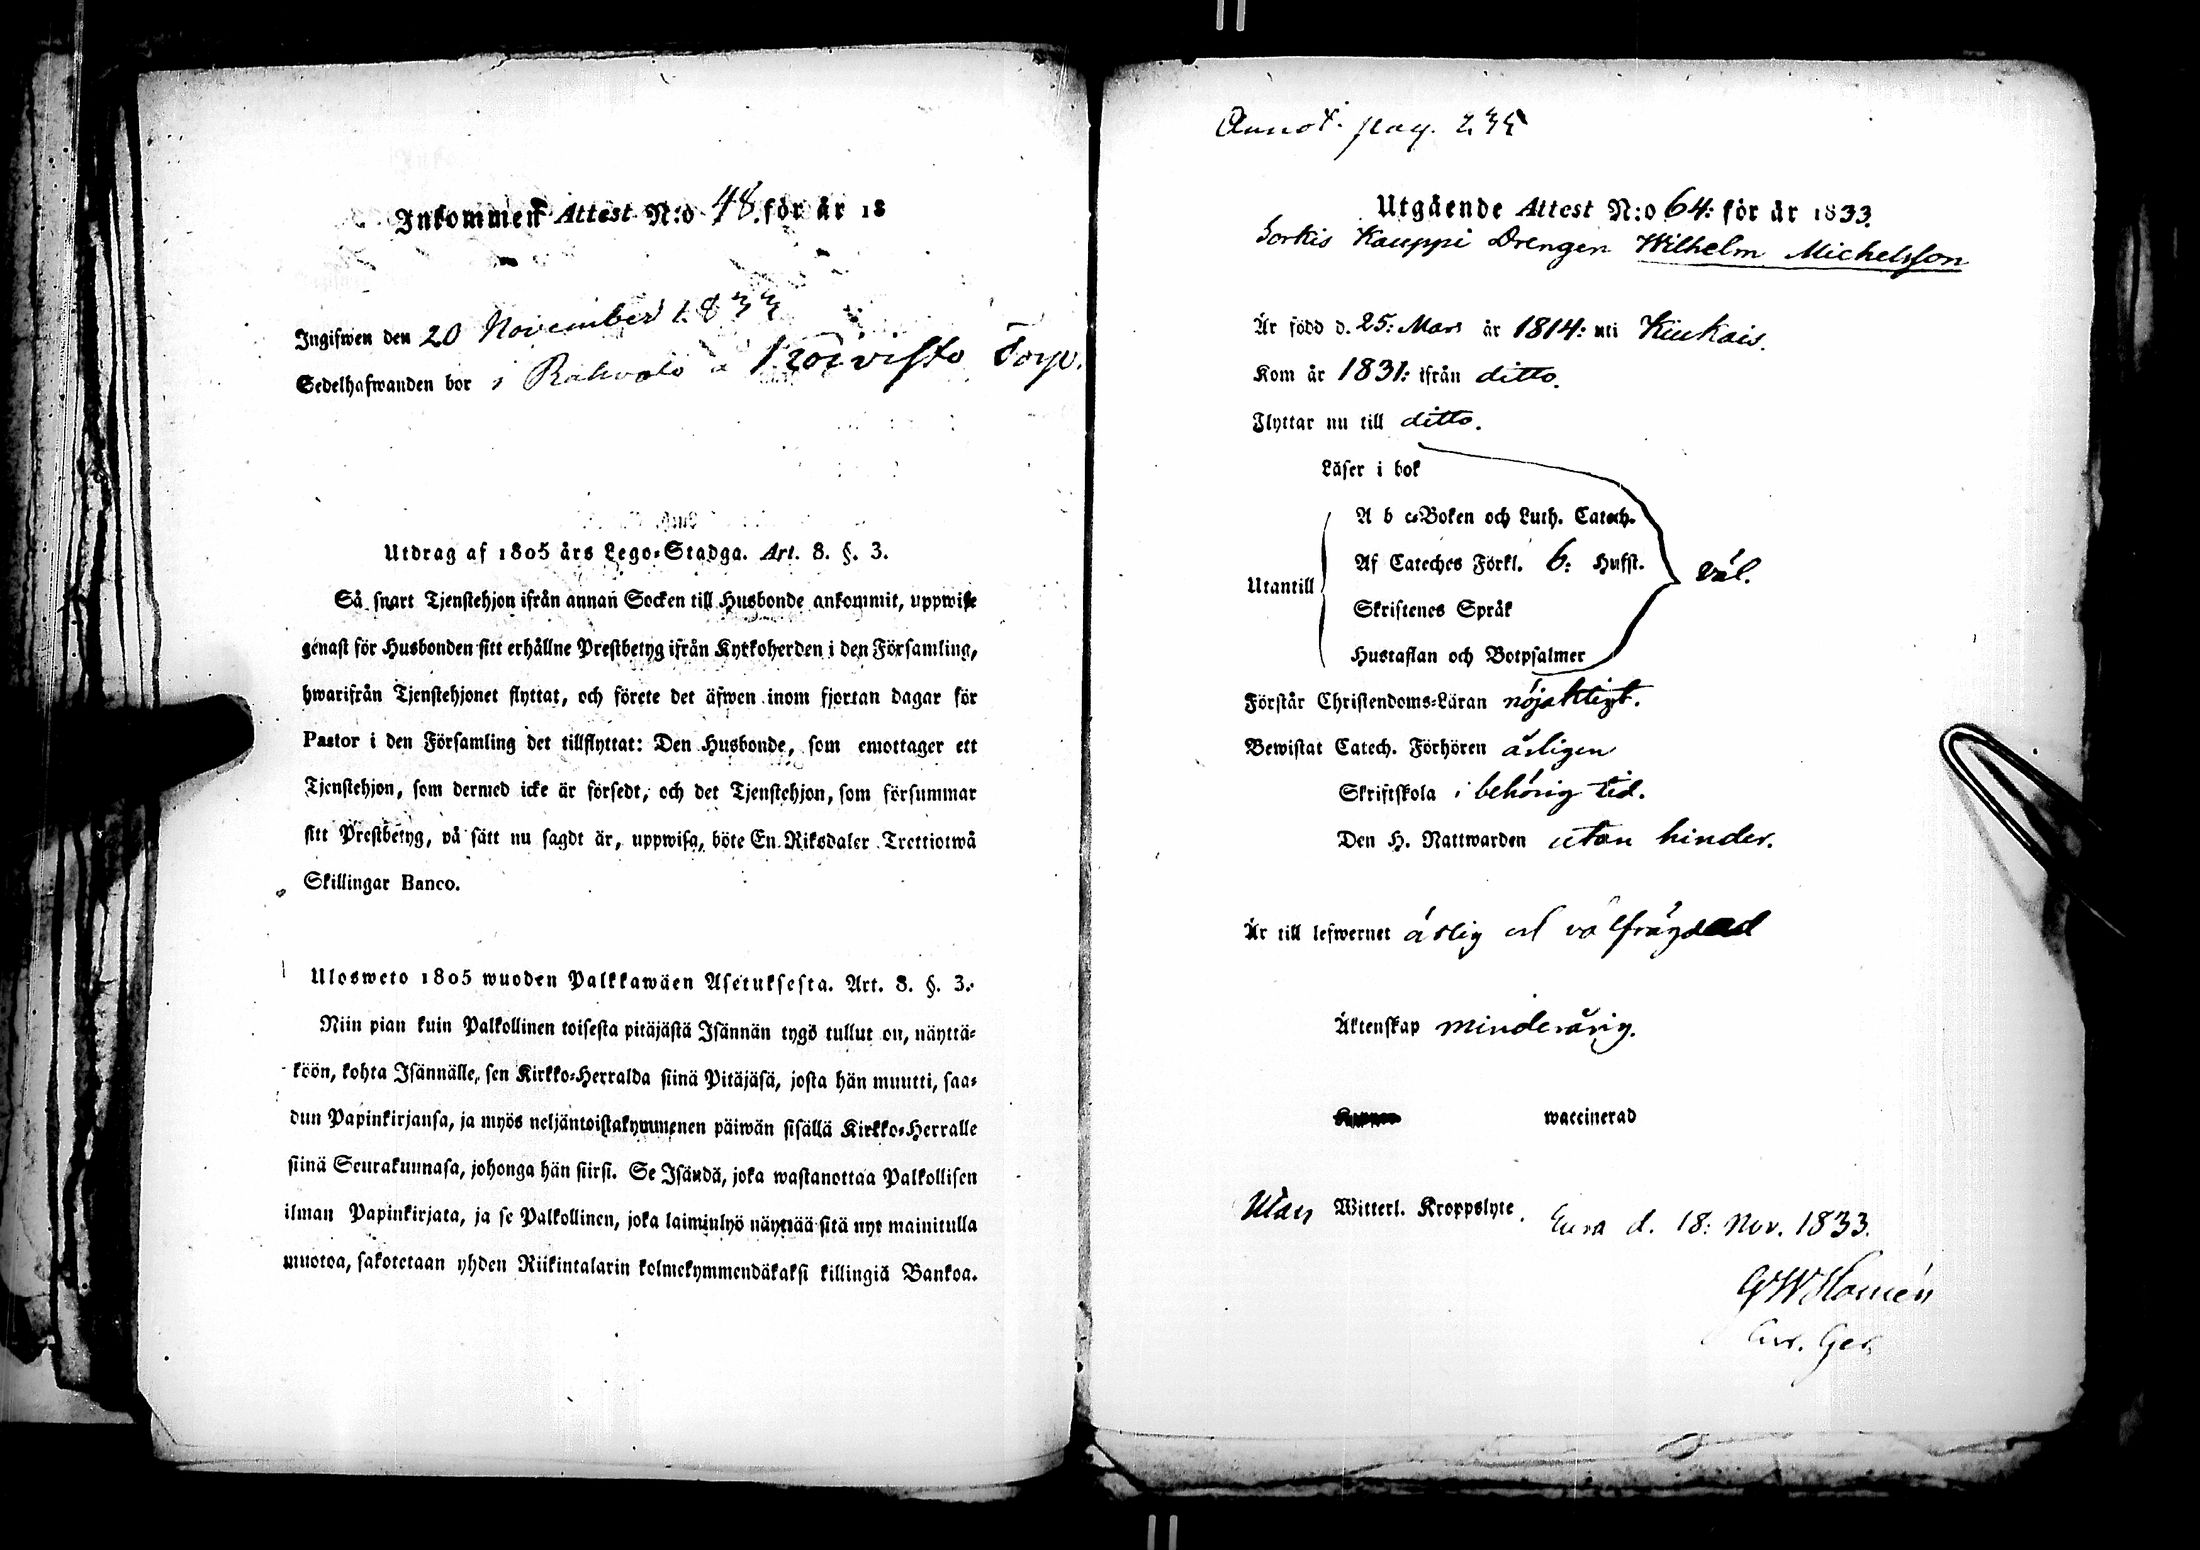 Inkommen Attest N:o 48. för år 18
Ingifwen den 20 November 1833
Sedelhafwanden bor i Rahvola å Koivisto Torp.
Utdrag af 1805 års Lego-Stadga. Art. 8. §. 3.
Så snart Tjenstehjon ifrån annan Socken till Husbonde ankommit, uppwise
genast för Husbonden sitt erhållne Prestbetyg ifrån Kyrkoherden i den Församling,
hwarifrån Tjenstehjonet flyttat, och förete det äfwen inom fjortan dagar för
Pastor i den Församling det tillflyttat: Den Husbonde, som emottager ett
Tjenstehjon, som dermed icke är försedt, och det Tjenstehjon, som försummar
sitt Prestbetyg, på sätt nu sagdt är, uppwisa, böte En Riksdaler Trettiotwå
Skillingar Banco.
Ulosweto 1805 wuoden Palkkawäen Asetuksesta. Art. 8. §. 3.
Niin pian kuin Palkollinen toisesta pitäjästä Isännän tygö tullut on, näyttä-
köön, kohta Isännälle, sen Kirkko-Herralda siinä Pitäjäsä, josta hän muutti, saa-
dun Papinkirjansa, ja myös neljäntoistakymmenen päiwän sisällä Kirkko-Herralle
siinä Seurakunnasa, johonga hän siirsi. Se Isändä, joka wastanottaa Palkollisen
ilman Papinkirjata, ja se Palkollinen, joka laiminlyö näyttää sitä nyt mainitulla
muotoa, sakotetaan yhden Riikintalarin kolmekymmendäkaksi killingiä Bankoa.
Annot. pag. 235
Utgående Attest N:o 64: för år 1833.
Sorkis Kauppi Drengen Wilhelm Michelsson
Är född d. 25: Mars år 1814: uti Kiukais.
Kom år 1831: ifrån ditto.
Flyttar nu till ditto.
Läser i bok
A b c-Boken och Luth. Catech.
Af Cateches Förkl. 6: Hufst.
väl.
Utantill
Skriftenes Språk
Hustaflan och Botpsalmer
Förstår Christendoms-Läran nöjaktigt.
Bewistat Catech. Förhören årligen
Skriftskola i behörig tid.
Den H. Nattwarden utan hinder.
Är till lefwernet ärlig och välfrägdad
Äktenskap minderårig.
waccinerad
Utan Witterl. Kroppslyte. Eura d. 18: Nov. 1833.